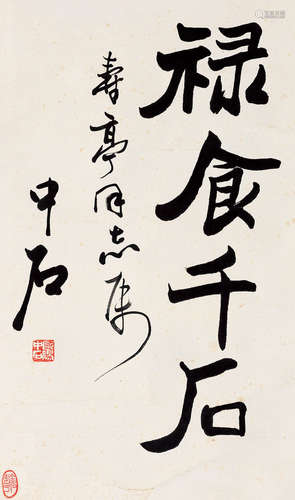 禄食千石
寿亭同志属
中石